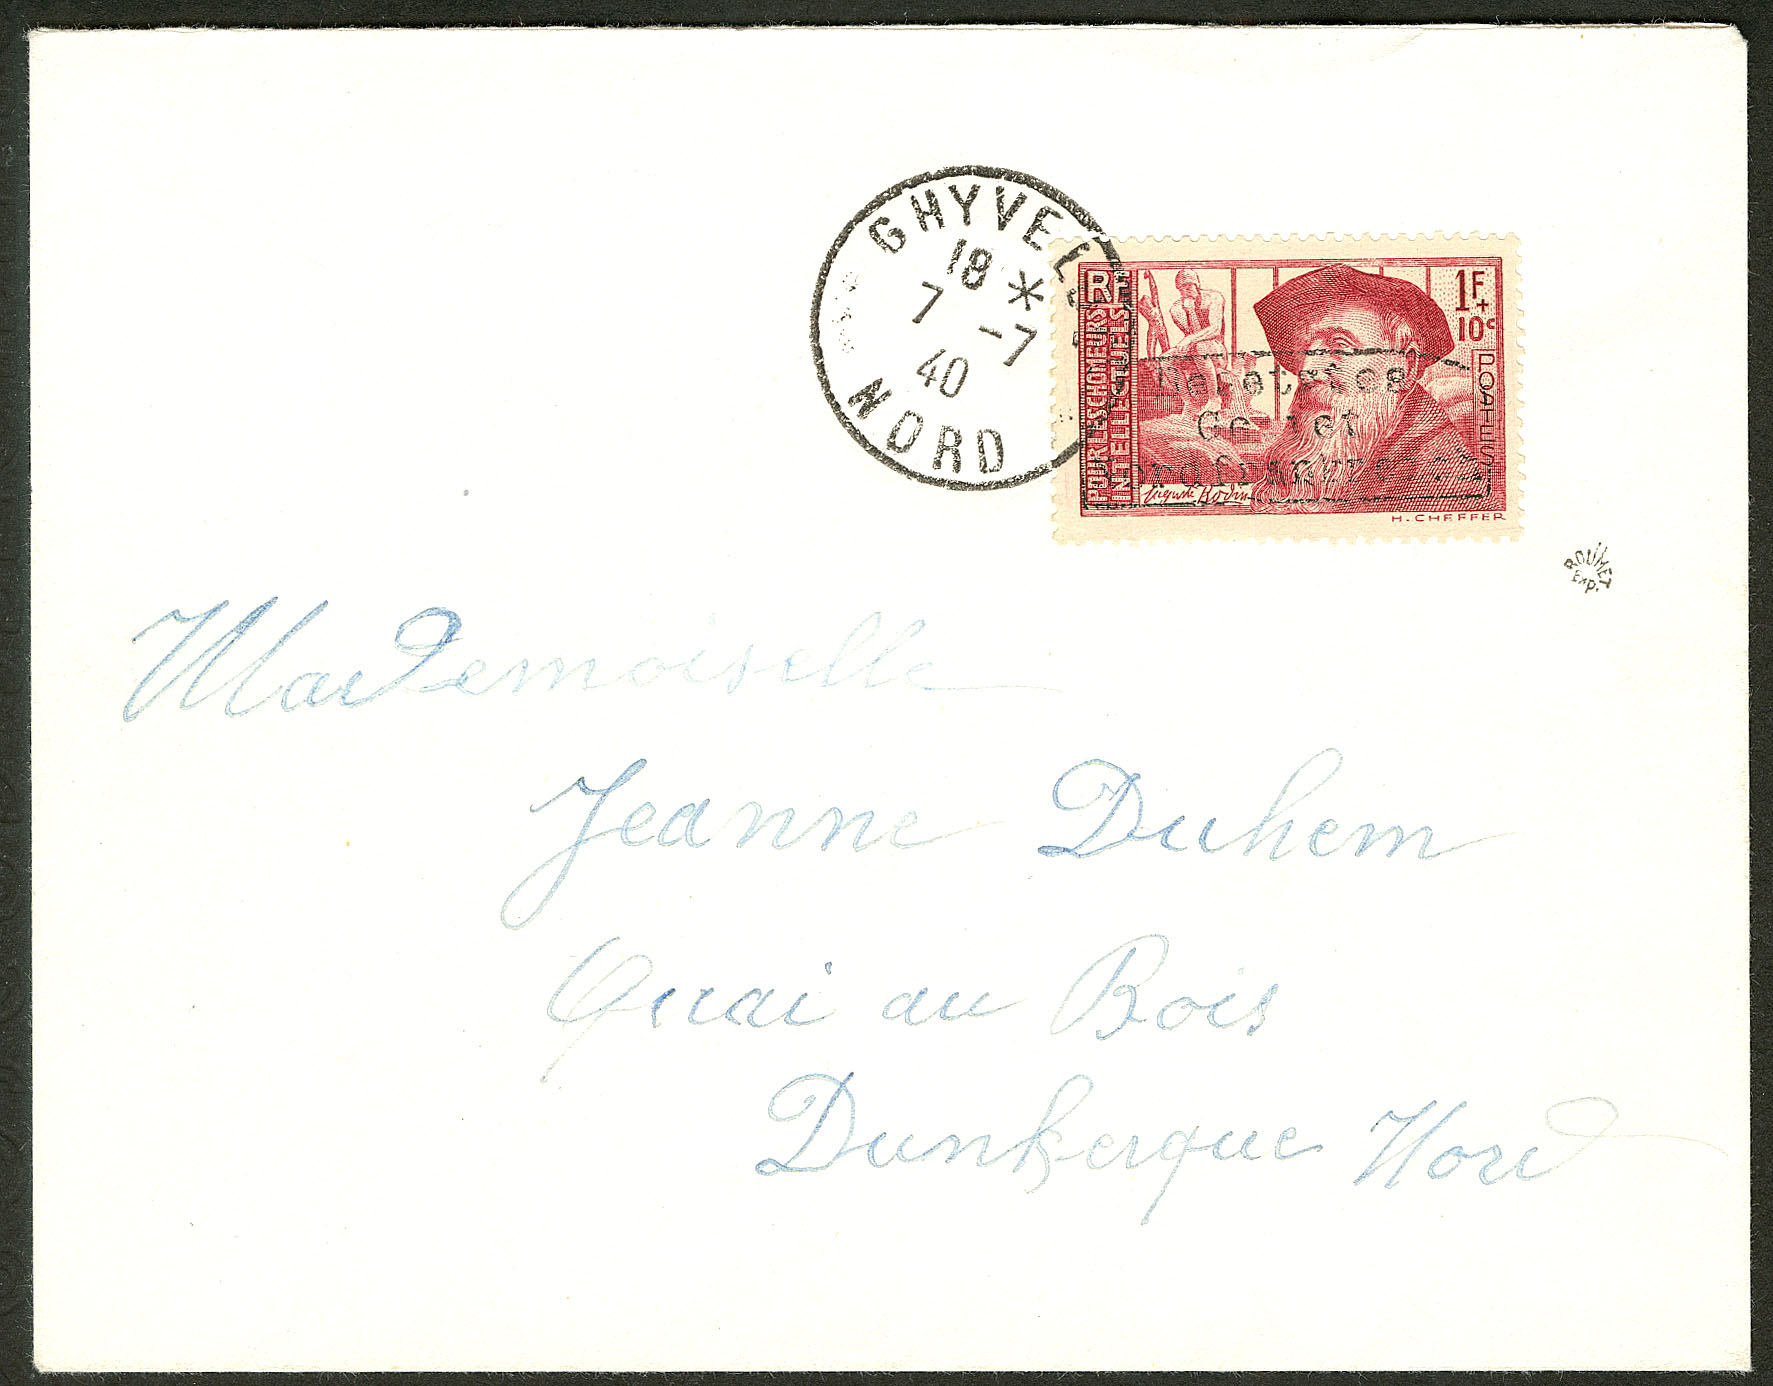 GHYVEL
18 *
7 -7
40
NORD
RF
POUR LES CHOMEURS
INTELLECTUELS
1F
+
10c
POSTES
Auguste Rodin
H. CHEFFER
Besetztes
Gebiet
Nordfrankreich
ROUMET
Exp.
Mademoiselle
Jeanne Duhem
Quai au Bois
Dunkerque Nord